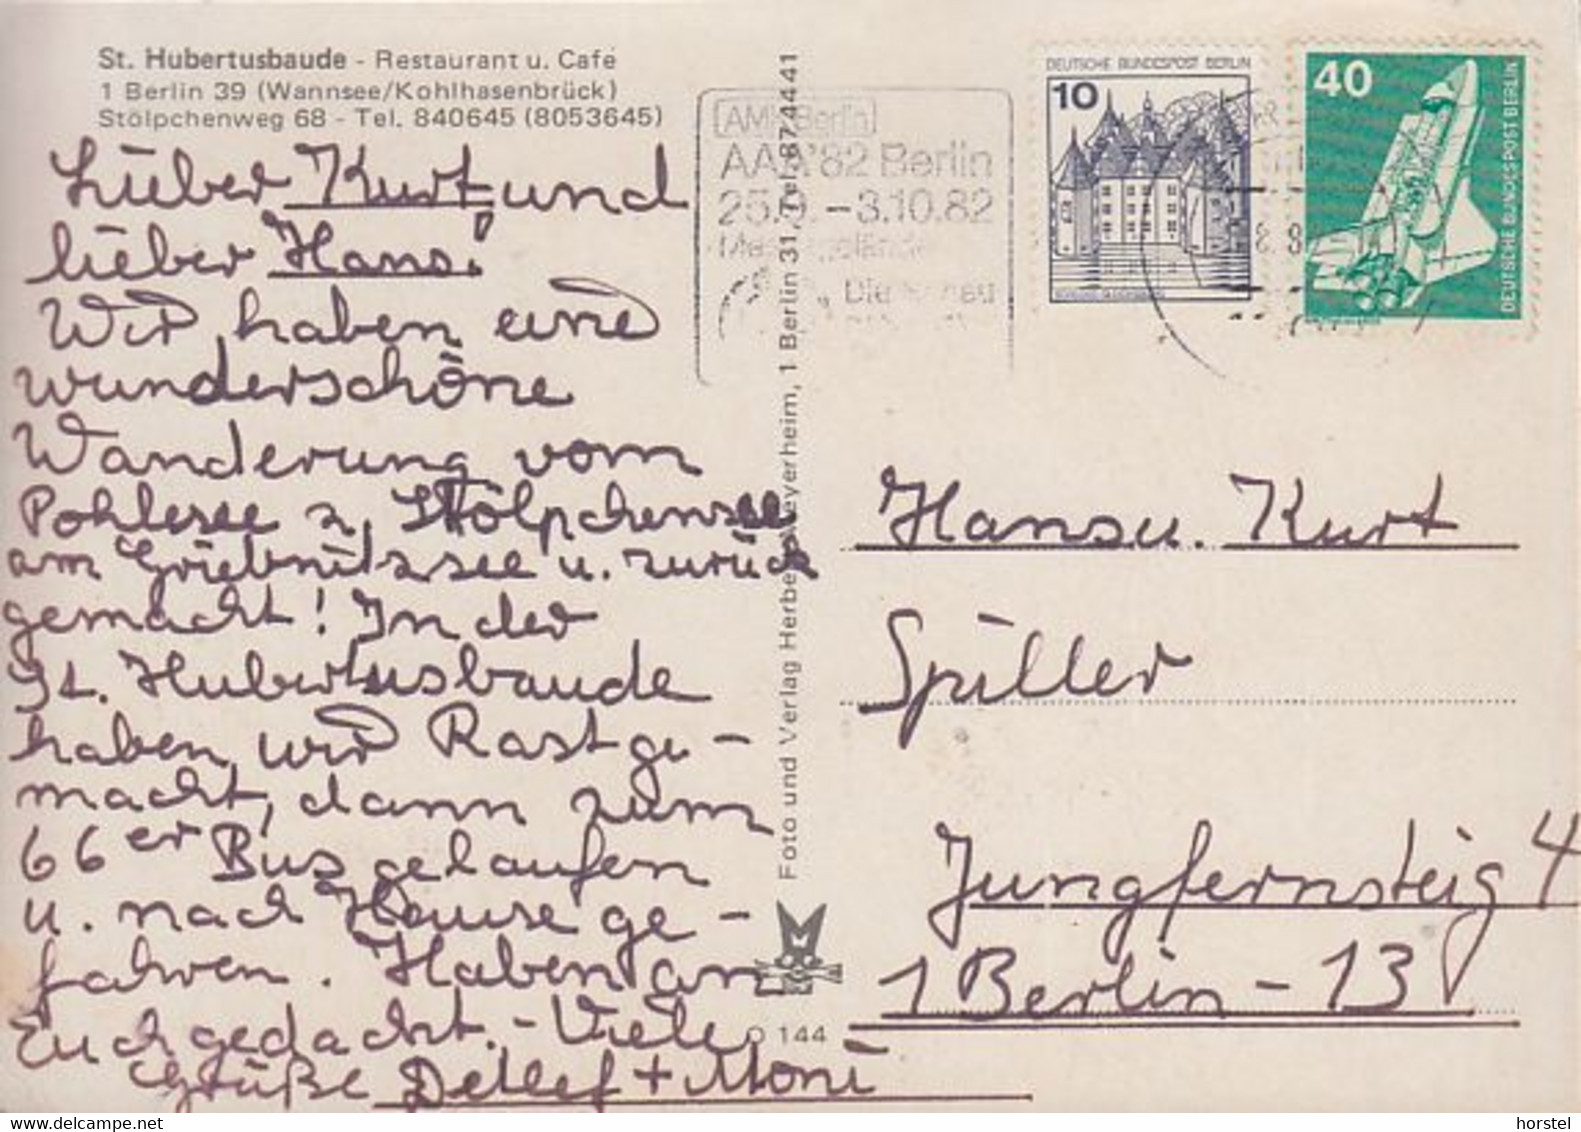 St. Hubertusbaude - Restaurant u. Café
1 Berlin 39 (Wannsee/Kohlhasenbrück)
Stölpchenweg 68 - Tel. 840645 (8053645)
Lieber Kurt und
lieber Hans!
Wir haben eine
wunderschöne
Wanderung vom
Pohlesee z. Stölpchensee
am Griebnitzsee u. zurück
gemacht! In der
St. Hubertusbaude
haben wir Rast ge-
macht, dann zum
66er Bus gelaufen
u. nach Hause ge-
fahren. Haben an
Euch gedacht. - Viele
Grüße Detlef + Moni
Foto und Verlag Herbert Meyerheim, 1 Berlin 31, Tel. 8744441
O 144
AMK Berlin
AAA'82 Berlin
25.9. - 3.10.82
Messegelände
Die Schau
DEUTSCHE BUNDESPOST BERLIN
10
40
DEUTSCHE BUNDESPOST BERLIN
Hans u. Kurt
Spiller
Jungfernsteig 4
1 Berlin - 13
www.delcampe.net
horstel